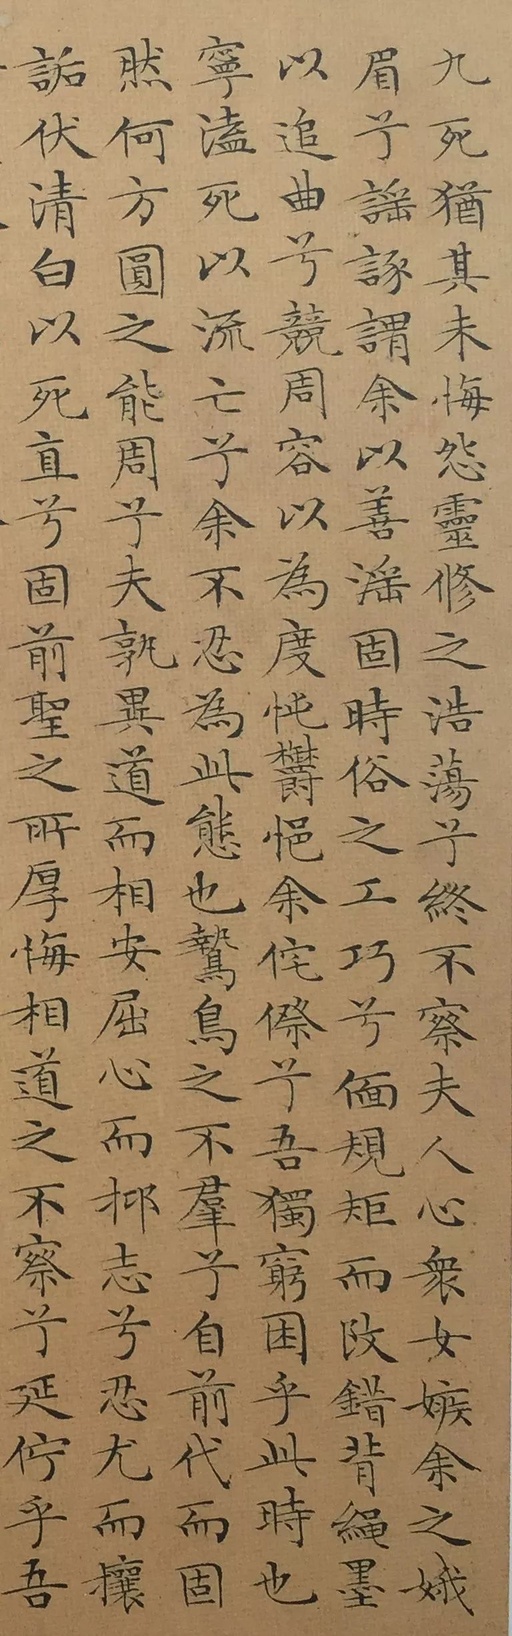 九死猶其未悔怨靈修之浩蕩兮終不察夫人心衆女嫉余之娥
眉兮謡諑謂余以善淫固時俗之工巧兮偭規矩而改錯背繩墨
以追曲兮競周容以為度忳鬱悒余侘傺兮吾獨窮困乎此時也
寧溘死以流亡兮余不忍為此態也鷙鳥之不羣兮自前代而固
然何方圓之能周兮夫孰異道而相安屈心而抑志兮忍尤而攘
詬伏清白以死直兮固前聖之所厚悔相道之不察兮延佇乎吾